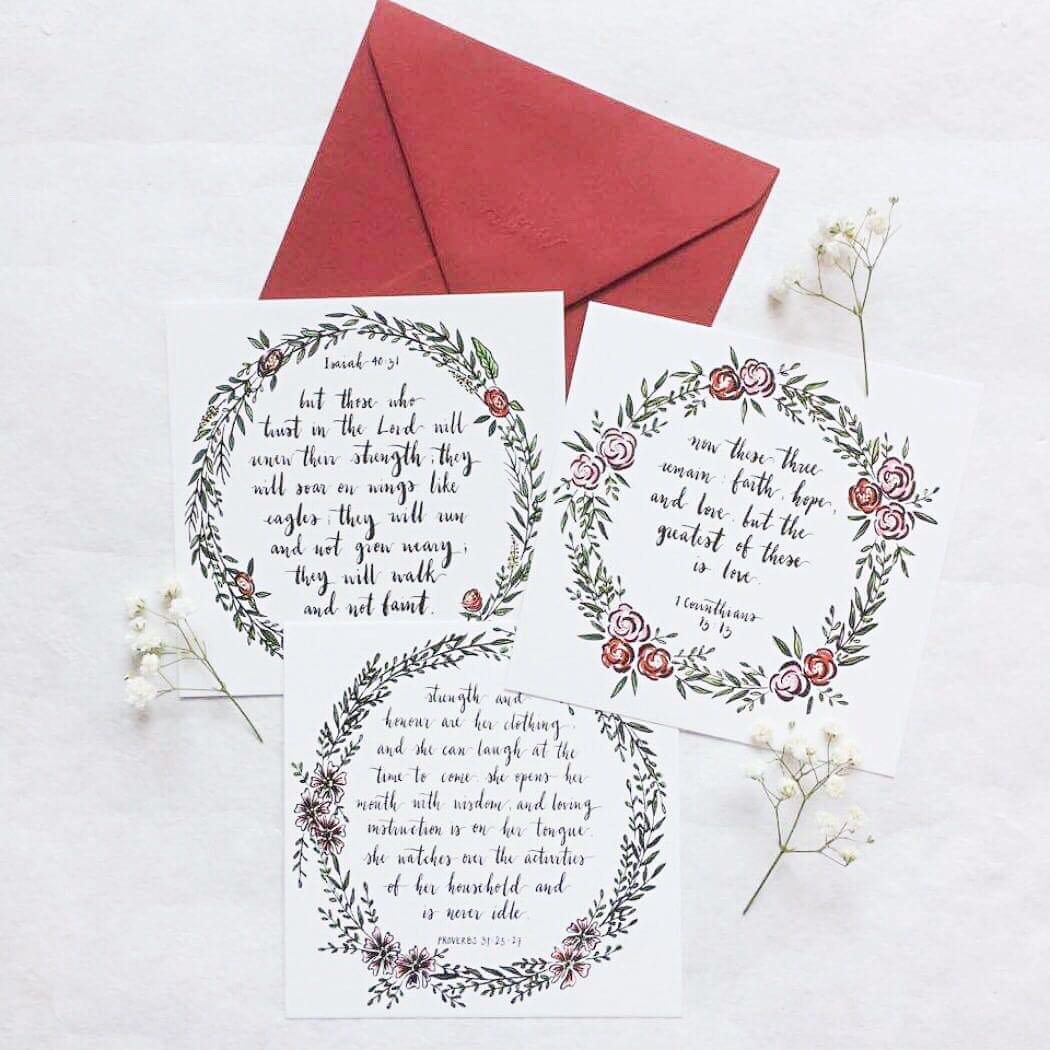 Isaiah 40:31
but those who
trust in the Lord will
renew their strength; they
will soar on wings like
eagles; they will run
and not grow weary;
they will walk
and not faint.
now these three
remain: faith, hope,
and love. but the
greatest of these
is love.
1 Corinthians
13:13
strength and
honour are her clothing,
and she can laugh at the
time to come. she opens her
mouth with wisdom, and loving
instruction is on her tongue.
she watches over the activities
of her household and
is never idle.
PROVERBS 31:25-27